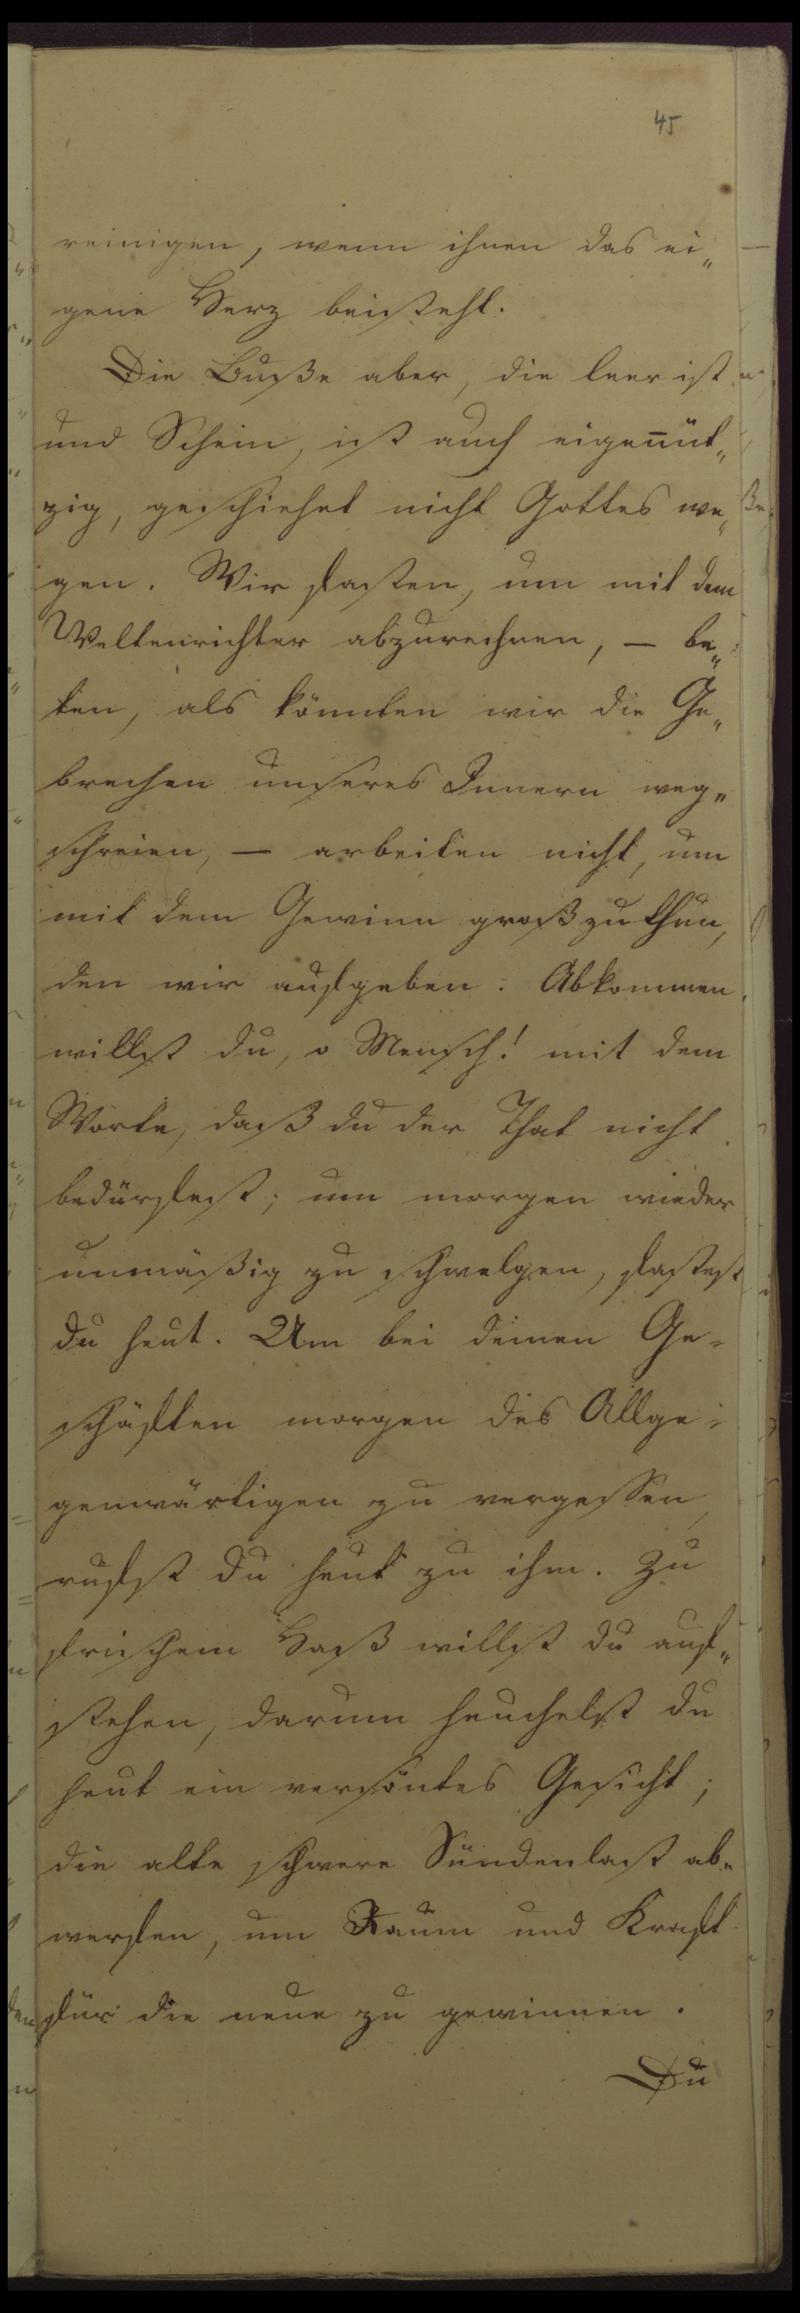 45
reinigen, wenn ihnen das ei„
gene Herz beisteht.
Die Buße aber, die leer ist
und Schein, ist auch eigen̅üt„
zig, geschiehet nicht Gottes we„
gen. Wir fasten, um mit dem
Weltenrichter abzurechnen, — be„
ten, als könnten wir die Ge„
brechen unseres Innern weg„
schreien, — arbeiten nicht, um
mit dem Gewinn groß zu thun,
den wir aufgeben. Abkommen
willst du, o Mensch! mit dem
Worte, daß du der That nicht
bedürfest; um morgen wieder
unmäßig zu schwelgen, fastest
du heut. Um bei deinen Ge=
schäften morgen des Allge=
genwärtigen zu vergessen,
rufst du heut zu ihm. Zu
frischem Haß willst du auf„
stehen, darum heuchelst du
heut ein versöntes Gesicht;
die alte schwere Sündenlast ab„
werfen, um Raum und Kraft
für die neue zu gewinnen.
Du